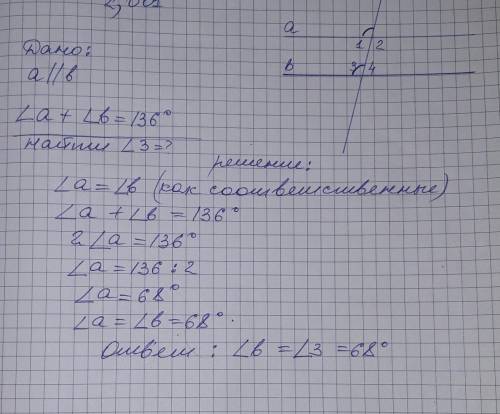 a
1 2
Дано:
a || в
в
3 4
∠a + ∠в = 136°
найти ∠3 = ?
решение:
∠a = ∠в (как соответственные)
∠a + ∠в = 136°
2∠a = 136°
∠a = 136 : 2
∠a = 68°
∠a = ∠в = 68°.
Ответ: ∠в = ∠3 = 68°